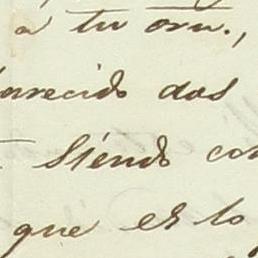 a tu oru.,
arecido dos
Siendo con
que es lo